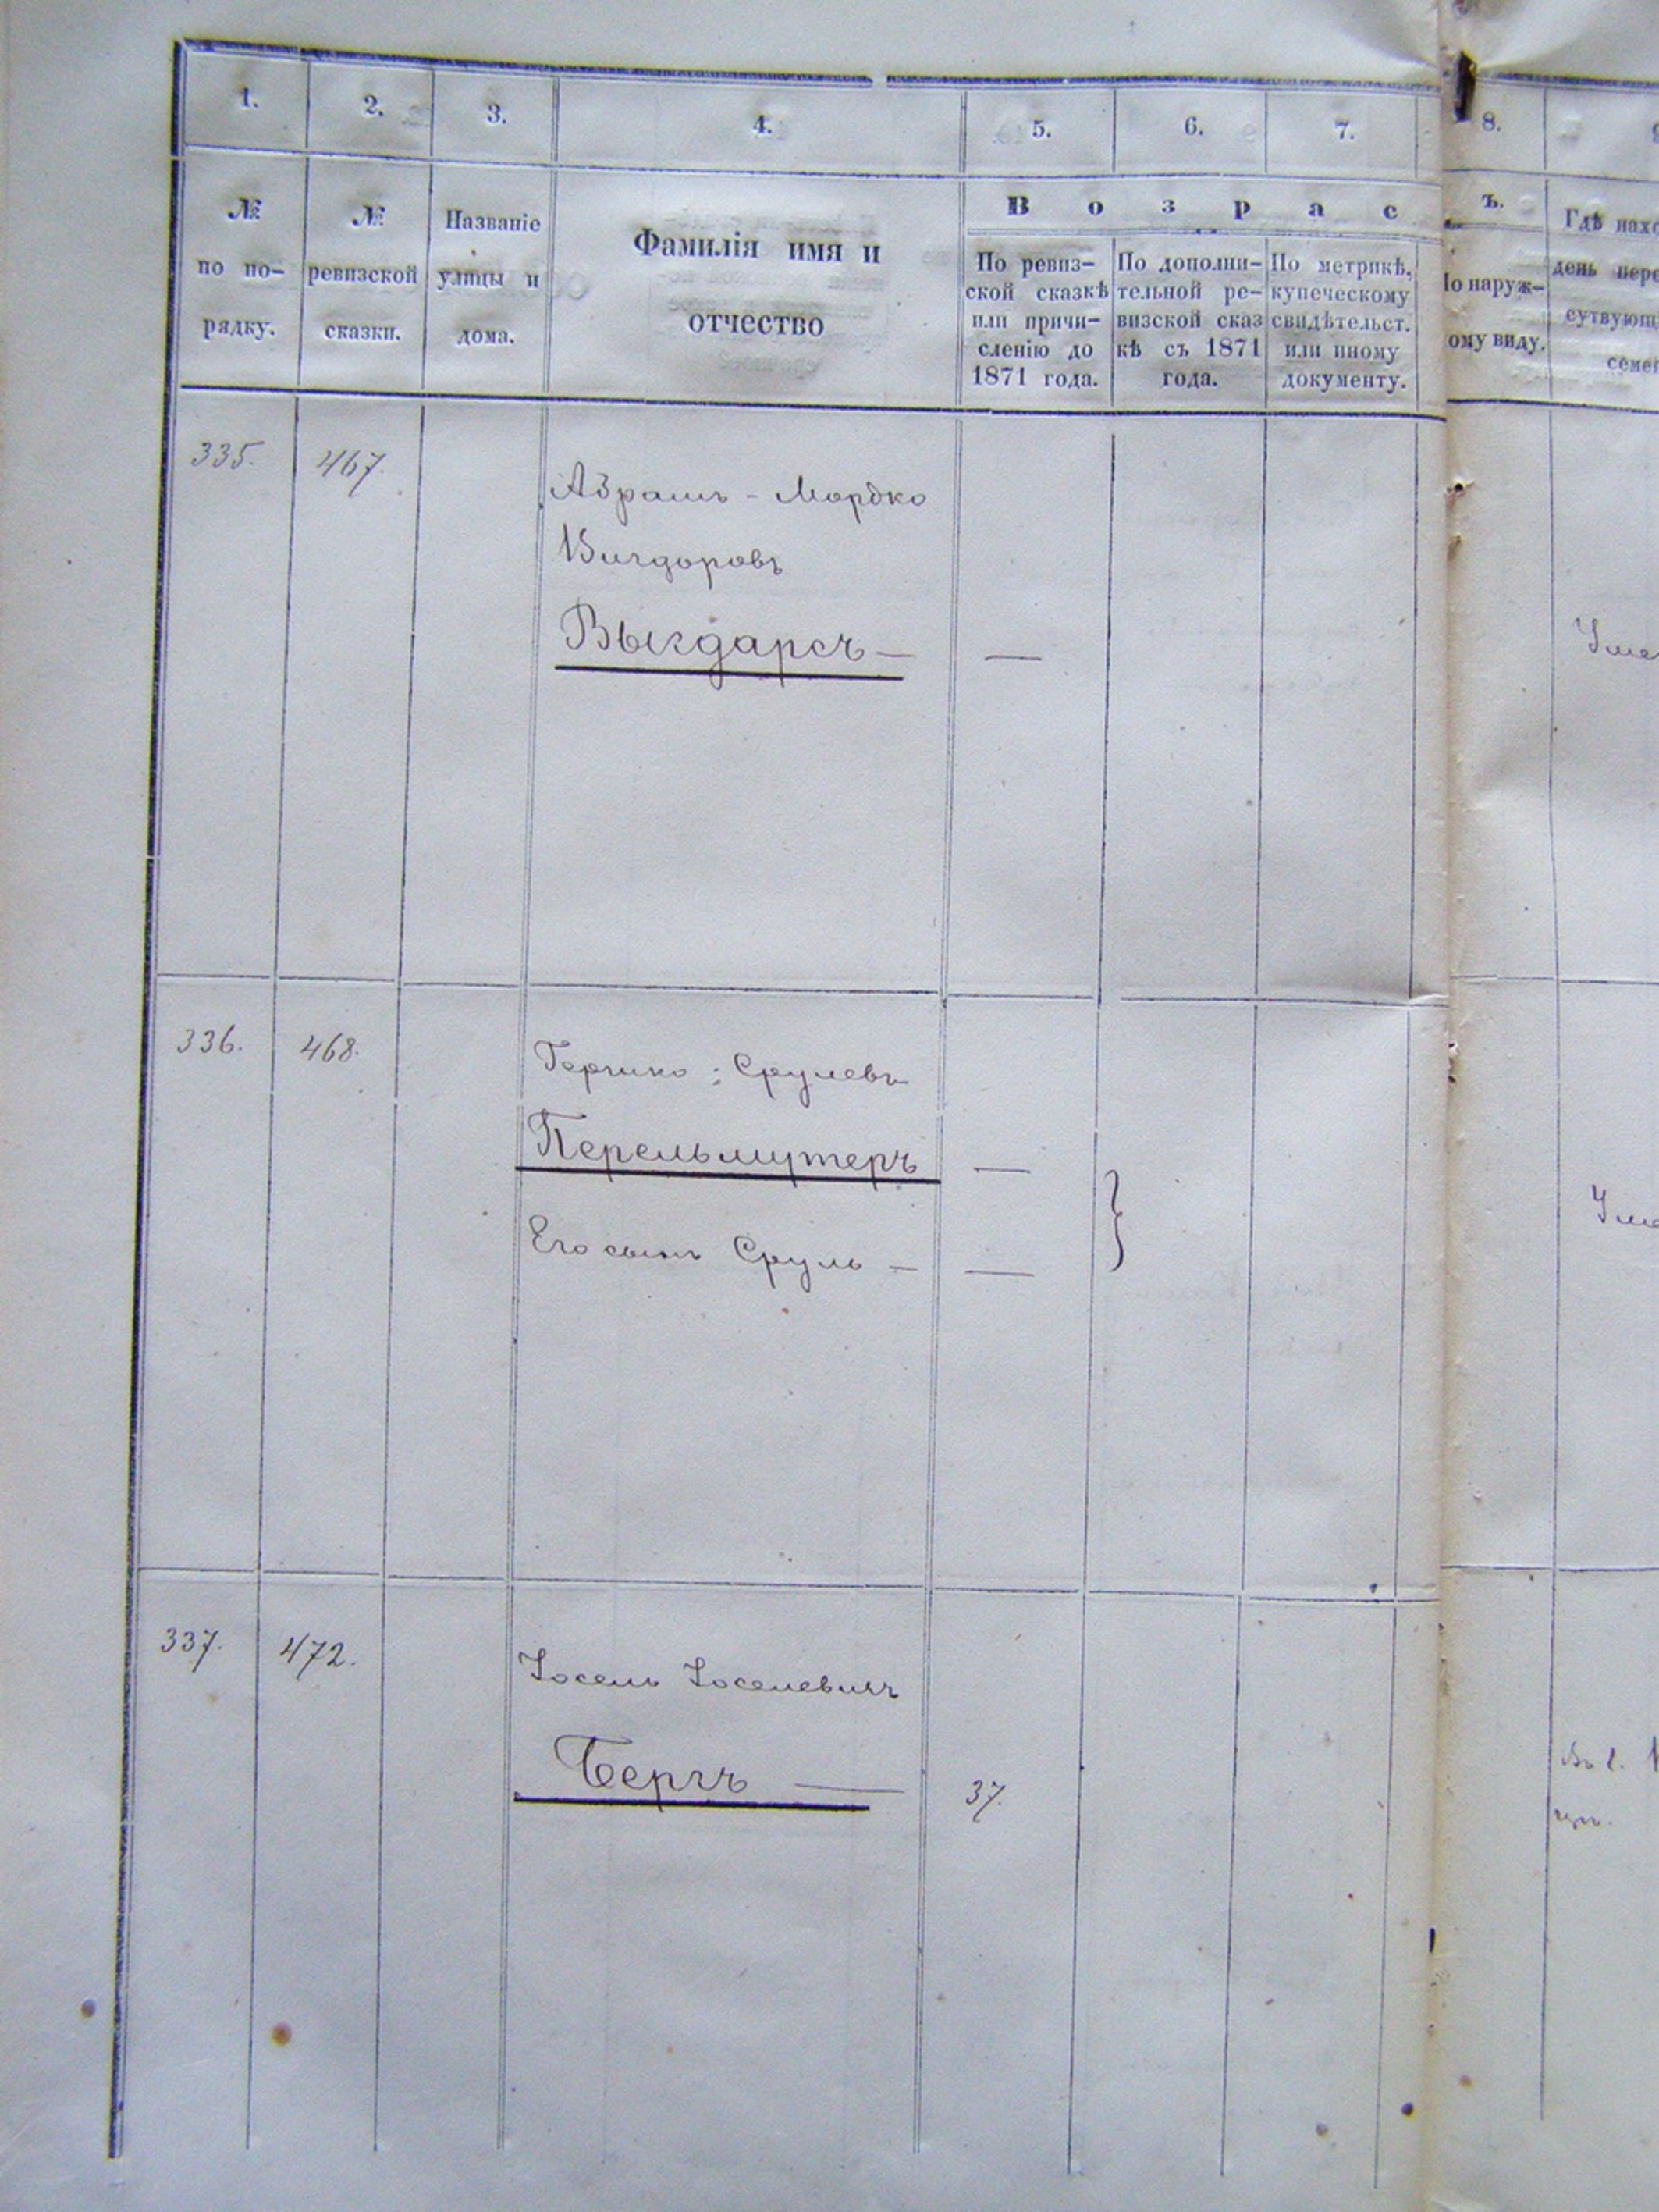 1. 2. 3. 4. 5. 6. 7. 8.
№ по по-рядку.
№ ревизской сказки.
Названіе улицы и дома.
Фамилія имя и
отчество
В о з р а с
ъ.
По ревиз-
ской сказкѣ
или причи-
сленію до
1871 года.
По дополни-
тельной ре-
визской сказ
кѣ съ 1871
года.
По метрикѣ,
купеческому
свидѣтельст.
или иному
документу.
о наруж-
ому виду.
Гдѣ
день
335. 467. Абрамъ - Мордко
Выгдарсъ —
—
336. 468. Гершко : Срулевъ
Перельмутеръ —
Его сынъ Сруль — —
337. 472. Іосель Іоселевичъ
Бергъ — 37.